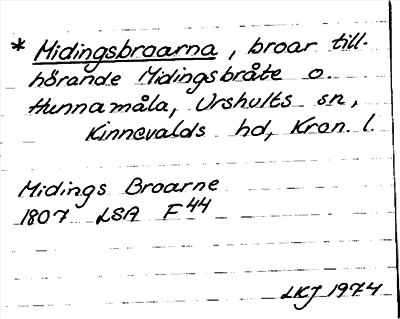 * Midingsbroarna, broar till-
hörande Midingsbråte o.
Hunnamåla, Urshults sn,
Kinnevalds hd, Kron. l.
Midings Broarne
1807 LSA F44
LKJ 1974